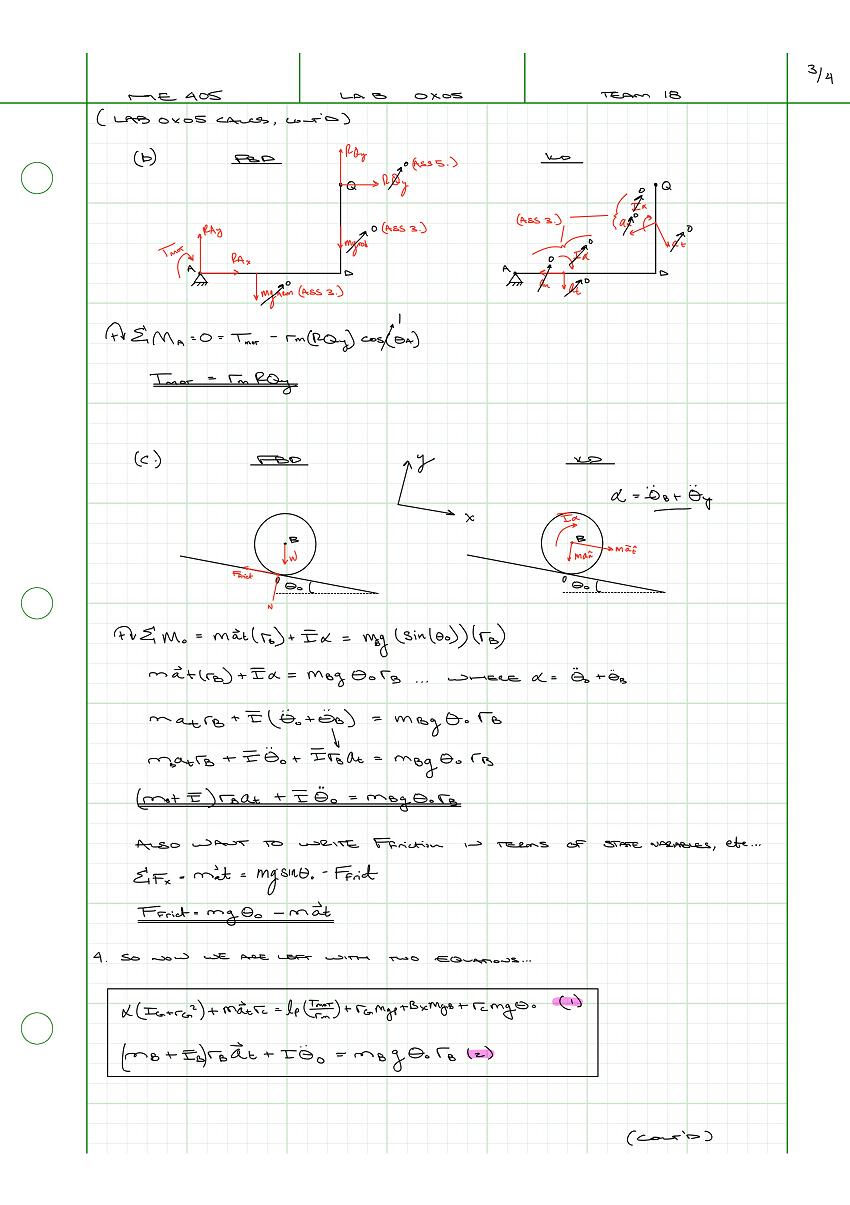 3/4
ME 405 LAB 0X05 TEAM 18
(LAB 0X05 CALCS, CONT'D)
(b) FBD KD
RQy
Q RQy 0 (ASS 5.)
0 (ASS 3.)
Tmot RAy
RAx
A D
0 (ASS 3.)
Q
(ASS 3.)
Iα 0
at 0
Iα 0
A D
an 0 at 0
+ ΣM_A = 0 = Tmot - rm(RQy) cos(θA) 1
Tmot = rm RQy
(c.) FBD y KD
x
α = θ̈B + θ̈y
B
W
Ffrict
θ0
N
Iα
B
mat
man
θ0
+ ΣM_0 = m a⃗t(rB) + Īα = mBg (sin(θ0))(rB)
m a⃗t(rB) + Īα = mBg θ0 rB ... WHERE α = θ̈0 + θ̈B
m at rB + Ī(θ̈0 + θ̈B) = mBg θ0 rB
mB at rB + Ī θ̈0 + Ī rB at = mBg θ0 rB
(mB + Ī) rB at + Ī θ̈0 = mBg θ0 rB
ALSO WANT TO WRITE Ffriction IN TERMS OF STATE VARIABLES, etc...
ΣFx = m a⃗t = mg sinθ0 - Ffrict
Ffrict = mg θ0 - m a⃗t
4. SO NOW WE ARE LEFT WITH TWO EQUATIONS...
α(IG + rG²) + m a⃗t rc = lp(Tmot/rm) + rG mgp + Bx mgB + rc mg θ0 (1)
(mB + ĪB) rB a⃗t + I θ̈0 = mB g θ0 rB (2)
(CONT'D)